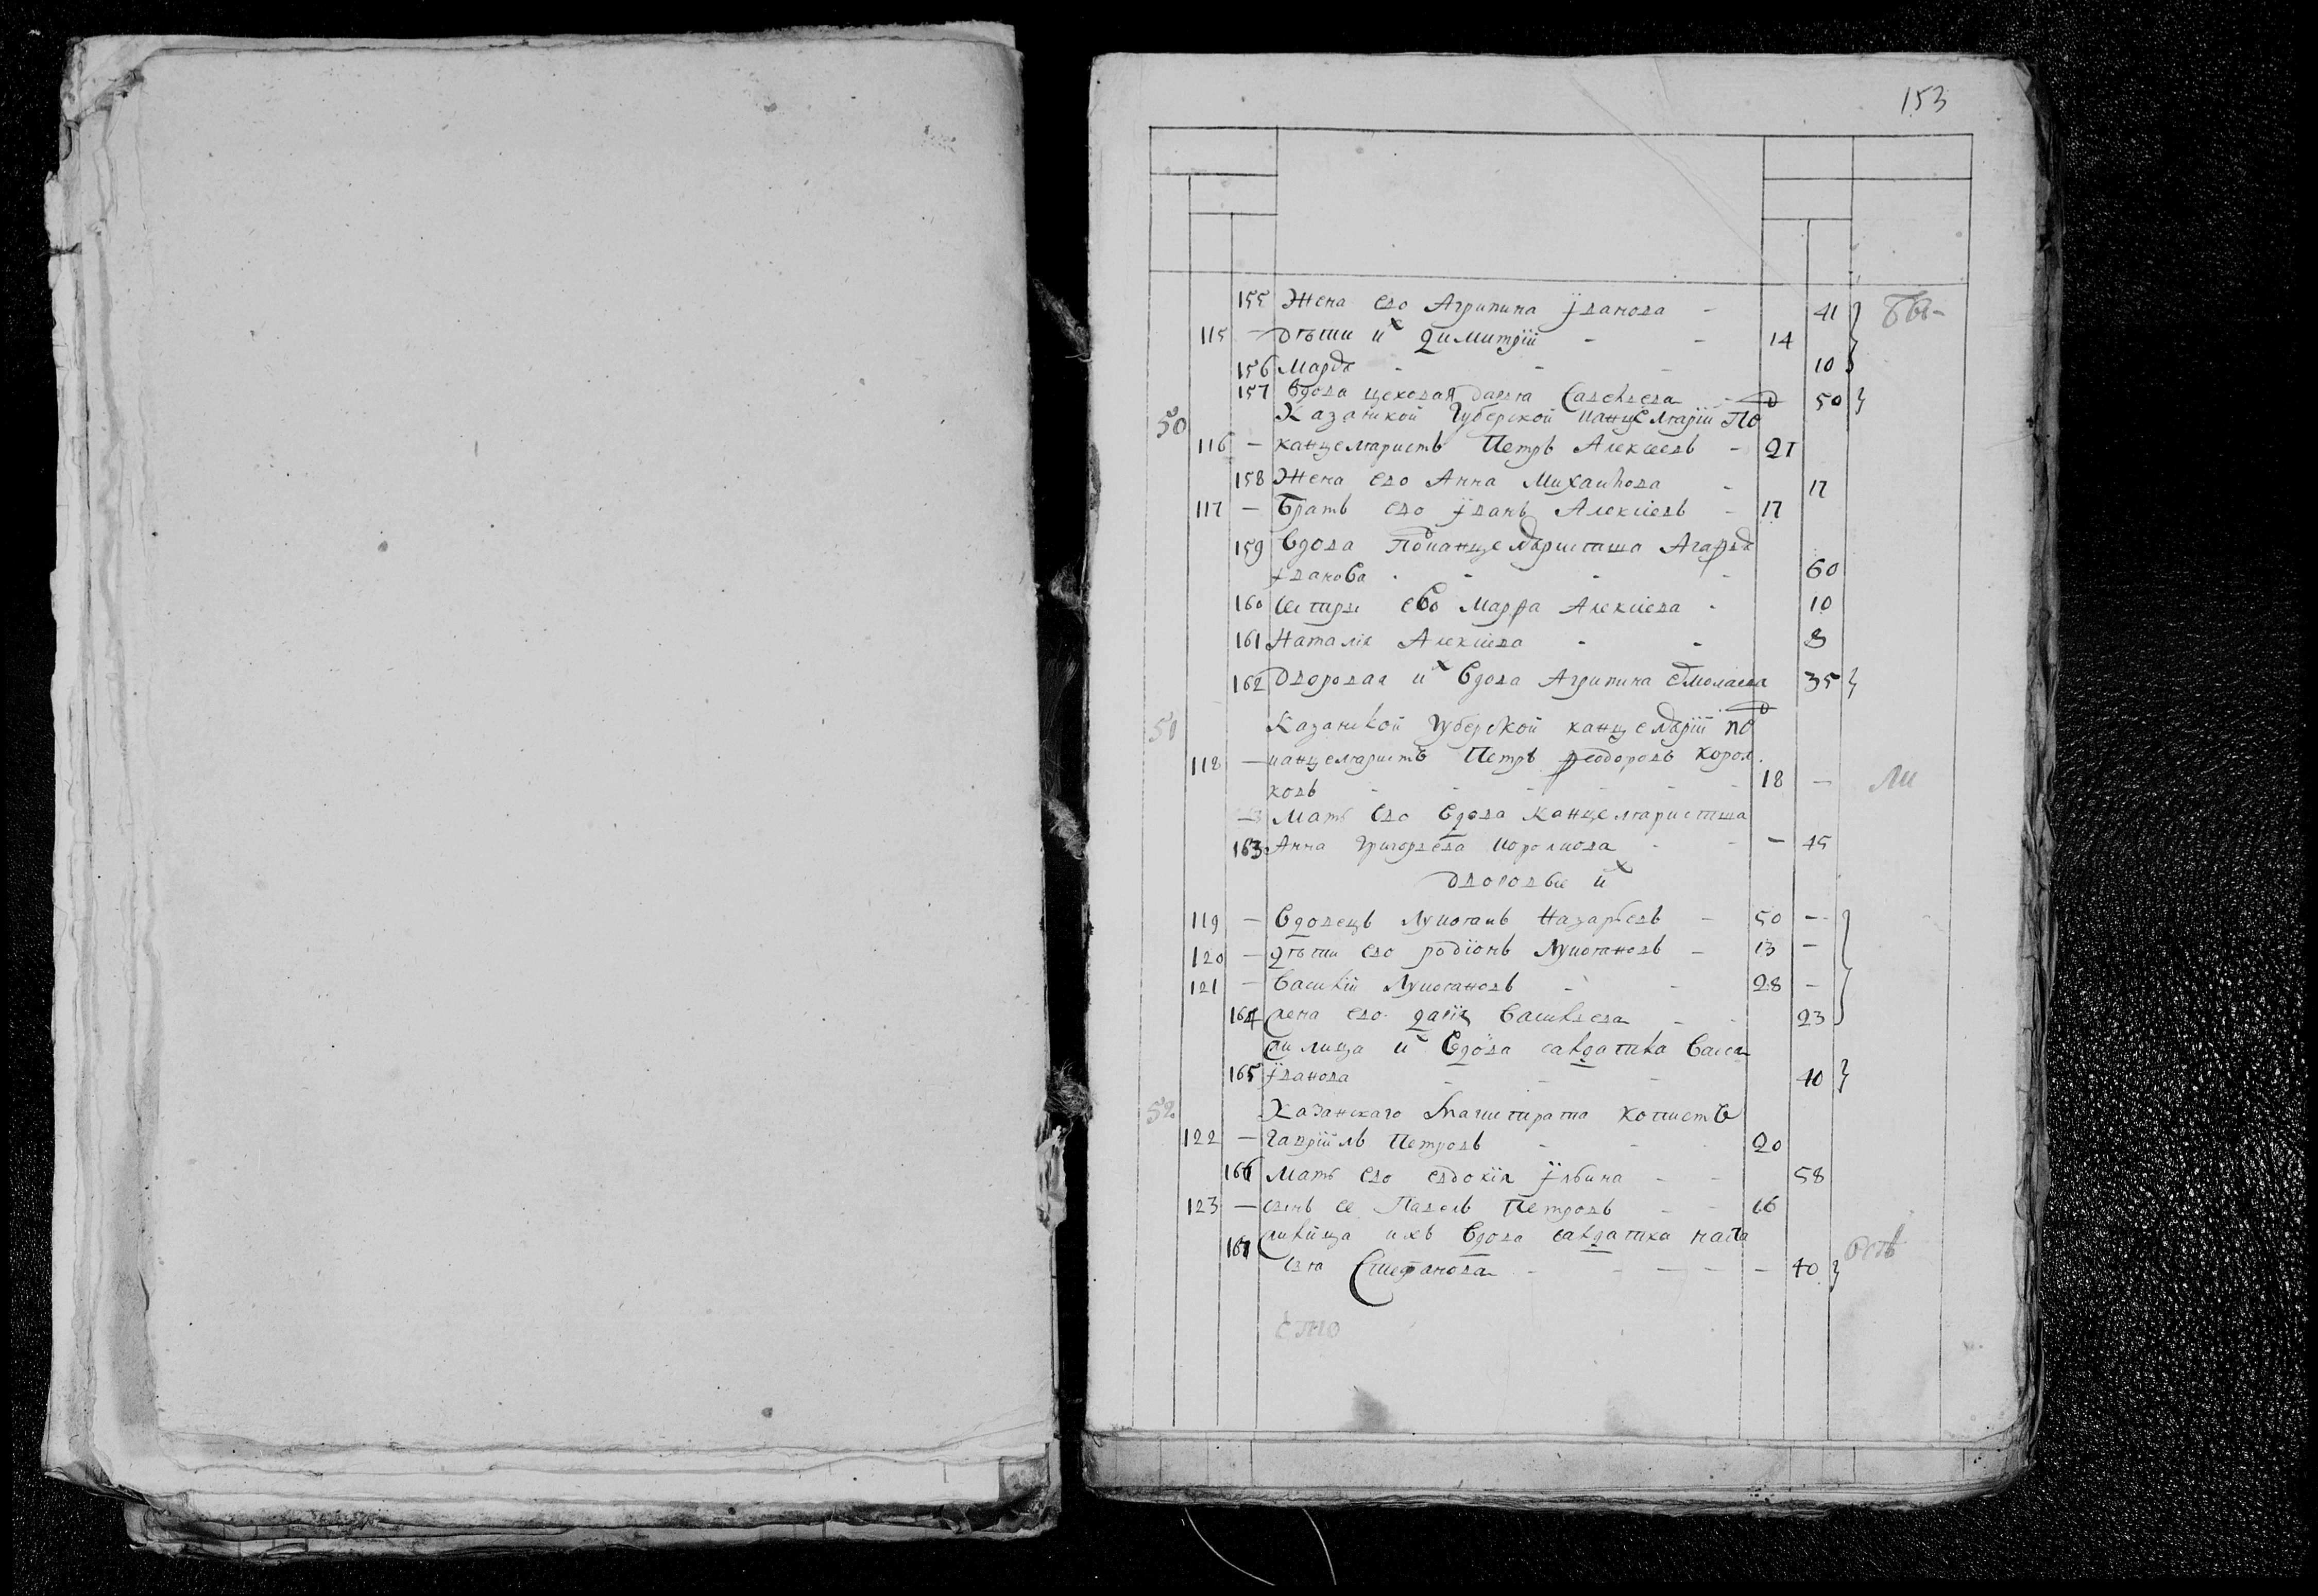 153
155 Жена ево Агрипина Їванова - 41 Бы-
115 - дѣти их Димитрїй - - 14
156 Марѳа - - - 10
157 Вдова цеховая Дарья Савельева - 50
50 Казанской Губерской канцелярїи под
116 - канцеляристъ Петръ Алексеевъ - 21
158 Жена ево Анна Михаилова - 17
117 - Братъ ево Їванъ Алексіевъ - 17
159 Вдова подканцеляристша Агафья
Їванова - - - - 60
160 Сестры ево Марфа Алексіева - 10
161 Наталія Алексіева - - 8
162 Дворовая их вдова Агрипина Ермолаева 35
51 Казанской Губерской канцелярїи под
118 - канцеляристъ Петръ Феодоровъ Корол
ковъ - - - - - 18 - ли
Мать ево вдова канцеляристша
163 Анна Григорьева Королкова - - - 45
дворовые их
119 - Вдовецъ Лукоянъ Назарьевъ - 50 -
120 - дѣти ево Родїонъ Лукояновъ - 13 -
121 - Василїй Лукояновъ - - 28 -
164 жена ево Васильева - - 23
лица их вдова салдатка Васса
165 Їванова - - - 40
52 Казанскаго Магистрата копистъ
122 - Гаврїилъ Петровъ - - - 20
166 Мать ево Евдокїя Їльина - - 58
123 - сынъ ее Павелъ Петровъ - - 16
167 ихъ вдова салдатка Наста
сья Стефанова - - - - - 40